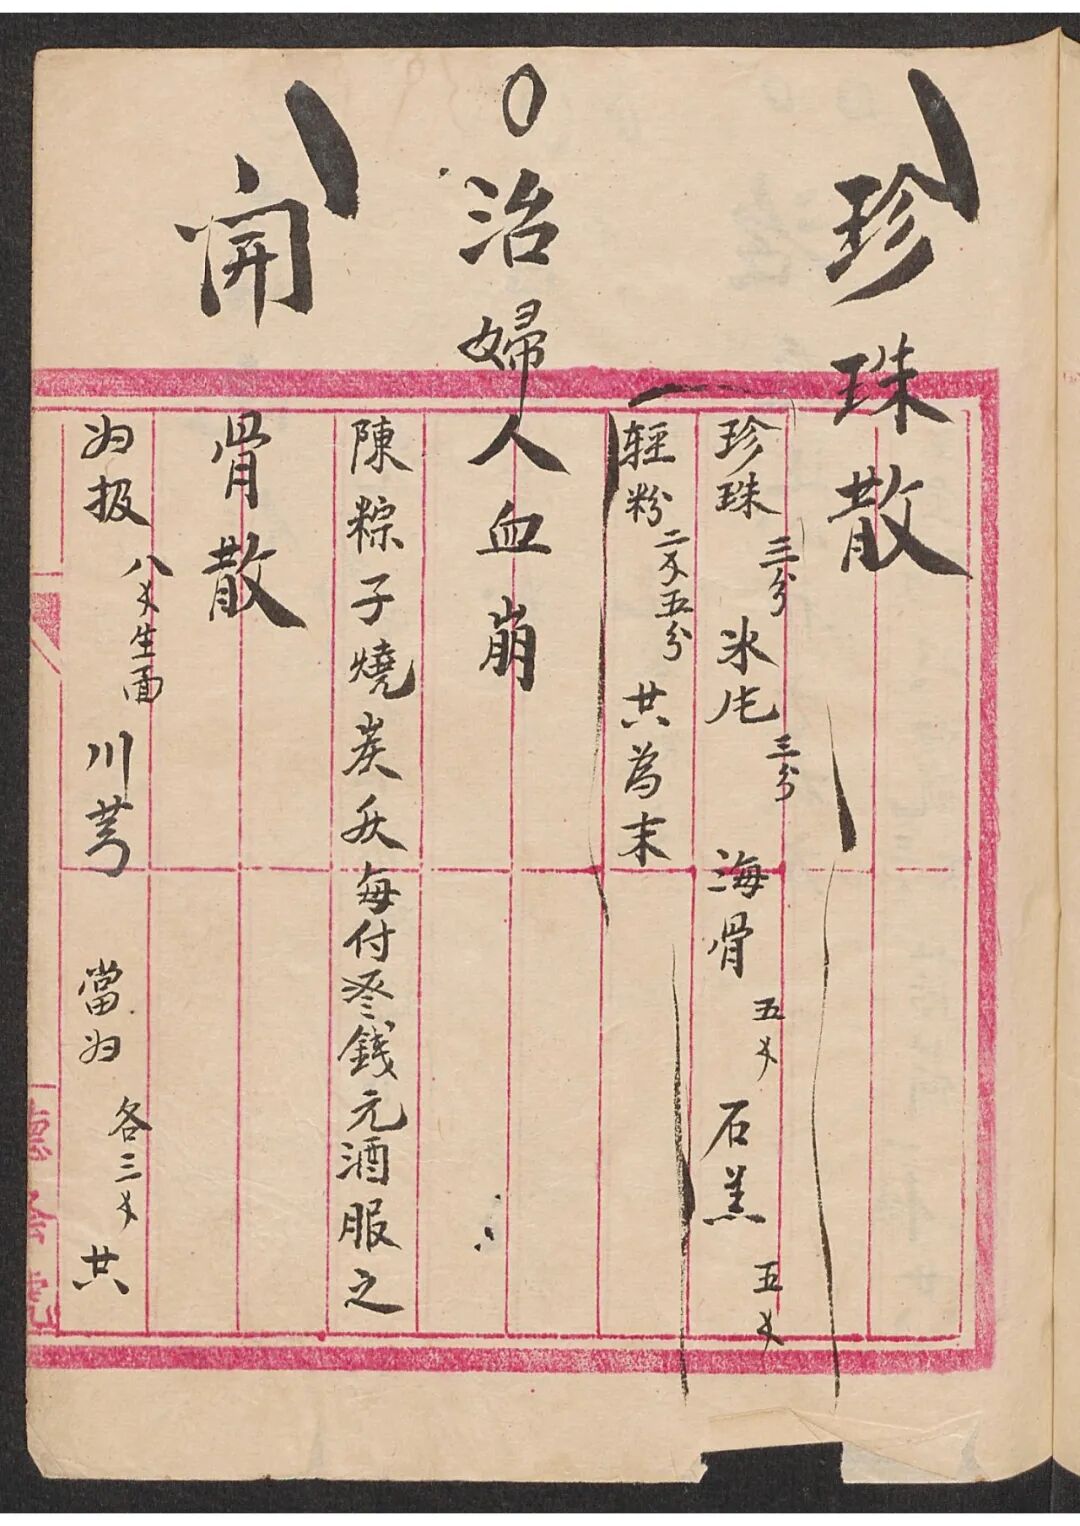 珍珠散
珍珠三分 氷片三分 海骨五才 石羔五才
轻粉二才五分 共為末
〇治婦人血崩
陳粽子燒炭灰每付叁錢元酒服之
開骨散
为扱八才生面 川芎 當为各三才 共